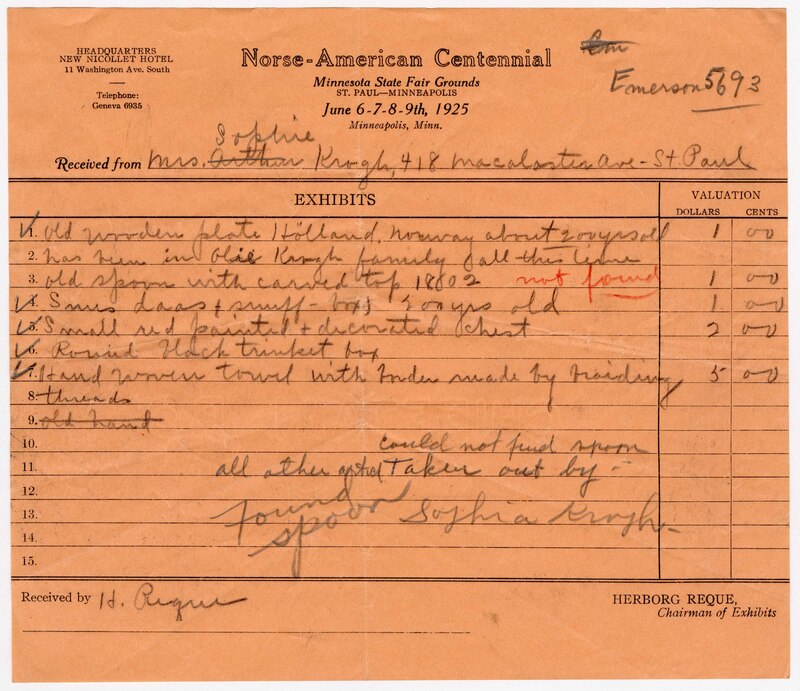 HEADQUARTERS
NEW NICOLLET HOTEL
11 Washington Ave. South
Telephone:
Geneva 6935
Norse-American Centennial
Minnesota State Fair Grounds
ST. PAUL—MINNEAPOLIS
June 6-7-8-9th, 1925
Minneapolis, Minn.
Em
Emerson 5693
Sophie
Received from Mrs. Arthur Krogh, 418 Macalaster Ave - St Paul
EXHIBITS
VALUATION
DOLLARS CENTS
1. old wooden plate Holland, Norway about 200 yrs old 1 00
2. has been in Ole Krogh family all this time
3. old spoon with carved top 1802 not found 1 00
4. Smus daas + snuff-box 200 yrs old 1 00
5. Small red painted + decorated chest 2 00
6. Round black trinket box
7. Hand woven towel with border made by braiding 5 00
8. threads
9. old hand
10. could not find spoon
11. all other Taken out by -
12.
13. found spoon Sophia Krogh -
14.
15.
Received by H. Reque
HERBORG REQUE,
Chairman of Exhibits